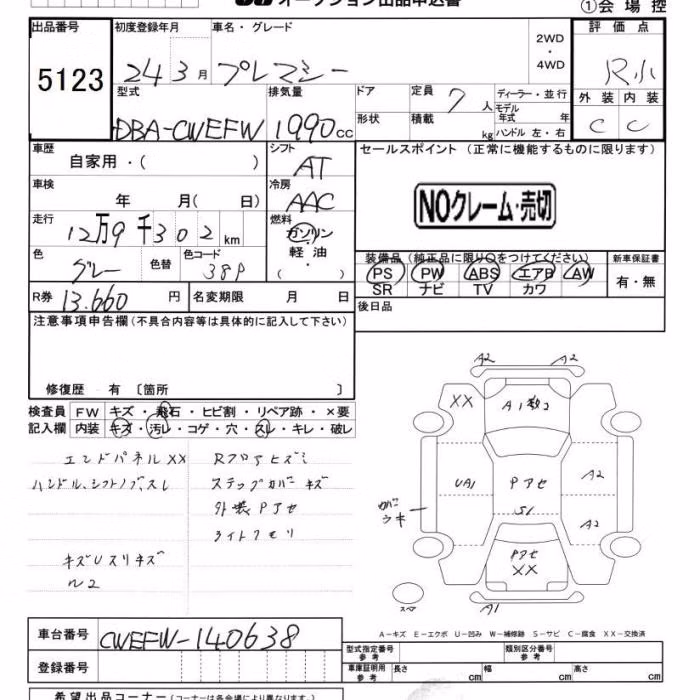 オークション出品申込書
①会場控
出品番号
5123
初度登録年月
24 3月
車名・グレード
プレマシー
2WD
・
4WD
評価点
R小
外装 内装
C C
型式
DBA-CWEFW
排気量
1990cc
ドア
形状
定員
7人
積載
kg
ディーラー・並行
モデル年式 年
ハンドル 左・右
車歴
自家用・( )
シフト
AT
セールスポイント (正常に機能するものに限ります)
NOクレーム・売切
車検
年 月( 日)
冷房
AAC
走行
12万9千302km
燃料
ガソリン
軽油
( )
色
グレー
色替
色コード
38P
装備品(純正品に限り○をつけてください)
PS PW ABS エアB AW
SR ナビ TV カワ
新車保証書
有・無
R券 13.660円
名変期限 月 日
後日品
注意事項申告欄(不具合内容等は具体的に記入して下さい)
修復歴 有 〔箇所 〕
検査員記入欄
FW キズ・飛石・ヒビ割・リペア跡・×要
内装 キズ・汚レ・コゲ・穴・スレ・キレ・破レ
エンドパネルXX
ハンドル、シフトノブ、スレ
Rフロアヒズミ
ステップカバーキズ
外装Pアセ
ライトクモリ
キズUスリキズ
A2 A2
XX
A1数2
UA1
Pアセ
S1
A2
A2
ウキ
Pアセ
XX
A1
スペア
A-キズ E-エクボ U-凹み W-補修跡 S-サビ C-腐食 XX-交換済
車台番号
CWEFW-140638
登録番号
型式指定番号
参考
類別区分番号
参考
車庫証明用
参考
長さ cm
幅 cm
高さ cm
希望出品コーナー(コーナーは各会場により異なります)